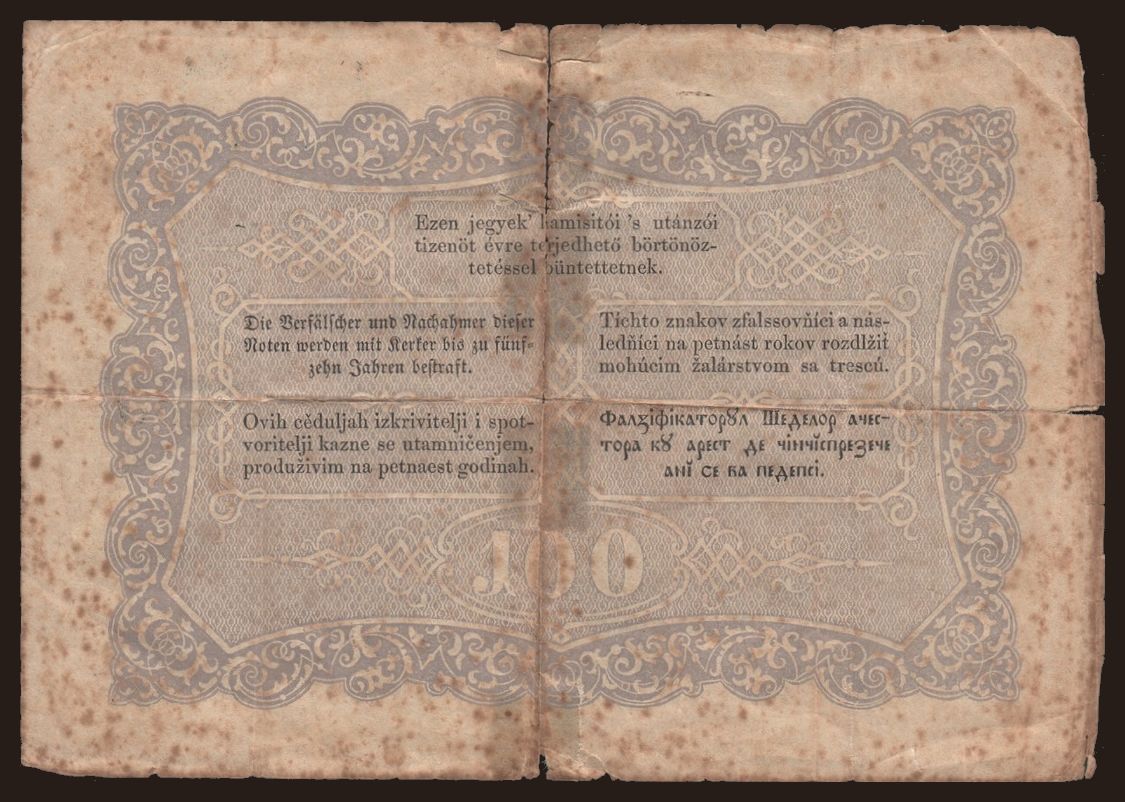 Ezen jegyek' hamisitói 's utánzói
tizenöt évre terjedhető börtönöz-
tetéssel büntettetnek.
Die Verfälscher und Nachahmer dieser
Noten werden mit Kerker bis zu fünf-
zehn Jahren bestraft.
Tíchto znakov zfalssovňíci a nás-
ledňíci na petnást rokov rozdlžiť
mohúcim žalárstvom sa trescú.
Ovih cěduljah izkrivitelji i spot-
voritelji kazne se utamničenjem,
produživim na petnaest godinah.
Фалꙃіфікаторꙋл Шеделор ачес-
тора кꙋ арест де чінчїспреꙃече
анї се ва педепсі.
100